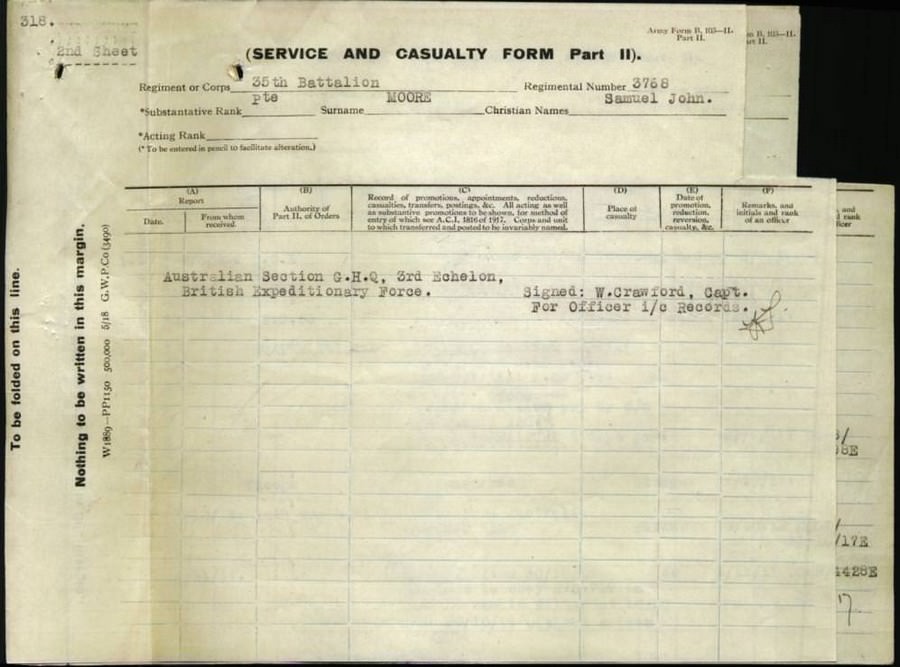 318.
2nd Sheet
Army Form B. 103—II.
Part II.
(SERVICE AND CASUALTY FORM Part II).
Regiment or Corps 35th Battalion Regimental Number 3768
*Substantive Rank pte Surname MOORE Christian Names Samuel John.
*Acting Rank
(* To be entered in pencil to facilitate alteration.)
(A)
Report
Date.
From whom received.
(B)
Authority of
Part II. of Orders
(C)
Record of promotions, appointments, reductions,
casualties, transfers, postings, &c. All acting as well
as substantive promotions to be shown, for method of
entry of which see A.C.I. 1816 of 1917. Corps and unit
to which transferred and posted to be invariably named.
(D)
Place of
casualty
(E)
Date of
promotion,
reduction,
reversion,
casualty, &c.
(F)
Remarks, and
initials and rank
of an officer
Australian Section G.H.Q, 3rd Echelon,
British Expeditionary Force.
Signed: W.Crawford, Capt.
For Officer i/c Records.
To be folded on this line.
Nothing to be written in this margin.
W1889—PP1150 500,000 5/18 G.W.P.Co(3490)
B. 103—II.
II.
and
rank
8E
/17E
4428E
17